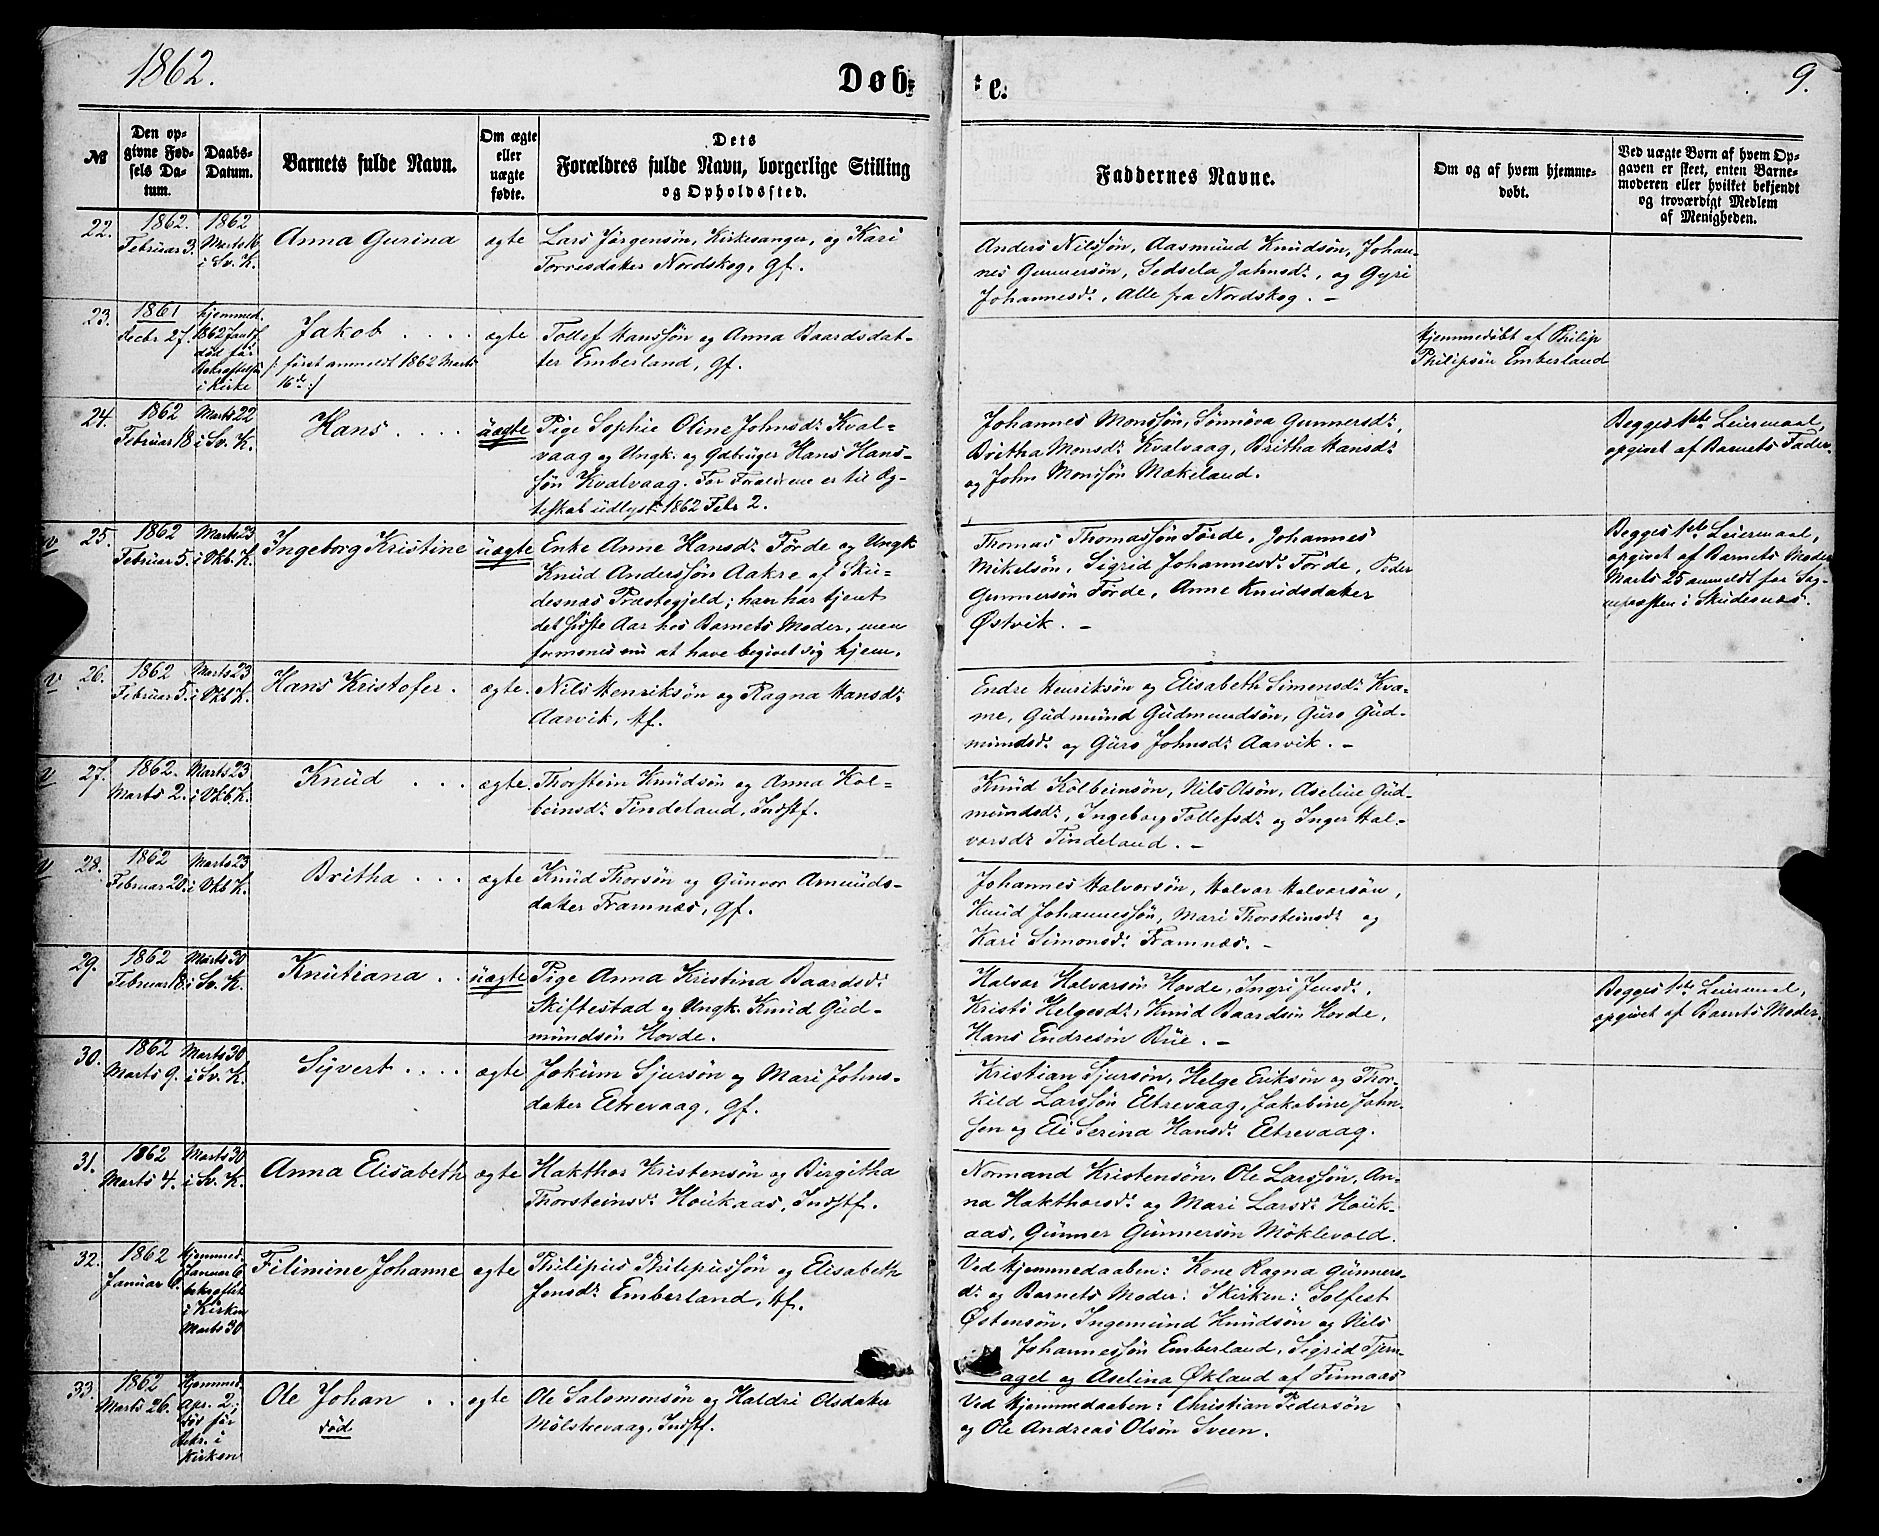 1862.
Døb-
-e.
9.
№
Den op-
givne Fød-
sels Da-
tum.
Daabs-
Datum.
Barnets fulde Navn.
Om ægte
eller
uægte
fødte.
Dets
Forældres fulde Navn, borgerlige Stilling
og Opholdssted.
Faddernes Navne.
Om og af hvem hjemme-
døbt.
Ved uægte Børn af hvem Op-
gaven er skeet, enten Barne-
moderen eller hvilket bekjendt
og troværdigt Medlem
af Menigheden.
22.
1862.
Februar 3.
1862
Marts 16
i Sv. K.
Anna Gurina
ægte
Lars Jørgensøn, Kirkesanger, og Kari
Torresdatter Nordskog, Gf.
Anders Nilssøn, Aasmund Knudsøn, Johan-
nes Gunnersøn, Sedsela Jahnsdr, og Gyri
Johannesdr, Alle fra Nordskog. -
23.
1861
Decbr 27.
hjemmed.
1862 Jan
død før
Bekræftelsen
i Kirke
Jakob . . . .
/: først anmeldt 1862 Marts
16de :/
ægte
Tollef Hanssøn og Anna Baardsdat-
ter Emberland, Gf.
Hjemmedøbt af Philip
Philipsøn Emberland
24.
1862
Februar 18
Marts 22
i Sv. K.
Hans . . . .
uægte
Pige Sophie Oline Johnsdr Kval-
vaag og Ungk. og Gbruger Hans Hans-
søn Kvalvaag. For Forældrene er til Æg-
teskab udlyst 1862 Febr 2.
Johannes Monssøn, Sønnøva Gunnersdr,
Britha Monsdr Kvalvaag, Britha Hansdr
og John Monssøn Mækeland.
Begges 1ste Leiermaal,
opgivet af Barnets Fader.
v
25.
1862
Februar 5.
Marts 23
i Vkb. K.
Ingeborg Kristine
uægte
Enke Anne Hansdr Førde og Ungk
Knud Anderssøn Aakre af Sku-
desnæs Præstegjeld; han har tjent
det sidste Aar hos Barnets Moder, men
formenes nu at have begivet sig hjem.
Thomas Thomassøn Førde, Johannes
Mikelsøn, Sigrid Johannesdr Førde, Peder
Gunnersøn Førde, Anne Knudsdatter
Østvik. -
Begges 1ste Leiermaal,
opgivet af Barnets Moder
Marts 25 anmeldt for Sog-
nepresten i Skudesnæs.
v
26.
1862
Februar 5.
Marts 23
i Vkb K.
Hans Kristofer .
ægte.
Nils Henriksøn og Ragna Hansdr
Aarvik, Hf.
Endre Henriksøn og Elisabeth Simensdr Kva-
me, Gudmund Gudmundsøn, Guro Gud-
mundsdr og Guro Johnsdr Aarvik. -
v
27.
1862.
Marts 2.
Marts 23
i Vkb. K.
Knud . . .
ægte
Thorstein Knudsøn og Anna Kol-
beinsdr Tindeland, Indstf.
Knud Kolbeinsøn, Nils Olsøn, Aseline Gud-
mundsdr, Ingeborg Tollefsdr og Inger Hal-
vorsdr Tindeland. -
v
28.
1862
Februar 20.
Marts 23
i Vkb K.
Britha . . .
ægte
Knud Thorsøn og Gunvor Amunds-
datter Framnæs, Gf.
Johannes Halvorsøn, Halvor Halvorsøn,
Knud Johannessøn, Mari Thorsteinsdr og
Kari Simonsdr Framnæs. -
29.
1862
Februar 18.
Marts 30
i Sv. K.
Knutiana . .
uægte
Pige Anna Kristina Baardsdr
Skiftestad og Ungk. Knud Gud-
mundsøn Hovde.
Halvor Halvorsøn Hovde, Ingri Jensdr,
Kristi Helgesdr, Knud Baardsøn Hovde,
Hans Endresøn Bue. -
Begges 1ste Leiermaal,
opgivet af Barnets Moder.
30.
1862
Marts 9.
Marts 30
i Sv. K.
Syvert . . . .
ægte
Jokum Sjursøn og Mari Johns-
datter Eltrevaag, Gf.
Kristian Sjursøn, Helge Eriksøn og Thor-
kild Larssøn Eltrevaag, Jakobine John-
sen og Eli Serina Hansdr Eltrevaag.
31.
1862
Marts 4.
Marts 30
i Sv. K.
Anna Elisabeth
ægte
Hakthor Kristensøn og Birgitha
Thorsteinsdr Houkaas, Indstf.
Normand Kristensøn, Ole Larssøn, An-
na Hakthorsdr og Mari Larsdr Houk-
aas, Gunner Gunnersøn Møklevold.
32.
1862
Januar 6.
Hjemmed.
Januar 6
bekræftet
i Kirken
Marts 30
Filimine Johanne
ægte
Philipus Philipussøn og Elisabeth
Jensdr Emberland, Hf.
Ved Hjemmedaaben: Kone Ragna Gunners-
dr og Barnets Moder: I Kirken: Solfest
Østensøn, Ingemund Knudsøn og Nils
Johannessøn Emberland, Sigrid Tjern-
agel og Aselina Økland af Finnaas
33.
1862
Marts 26.
Hjemmed.
Apr. 2;
død før
Bekr. i
Kirken
Ole Johan . .
død
ægte
Ole Salomonsøn og Haldri Olsdatter
Mølstrevaag, Indstf.
Ved Hjemmedaaben: Christian Pedersøn
og Ole Andreas Olsøn Sveen.